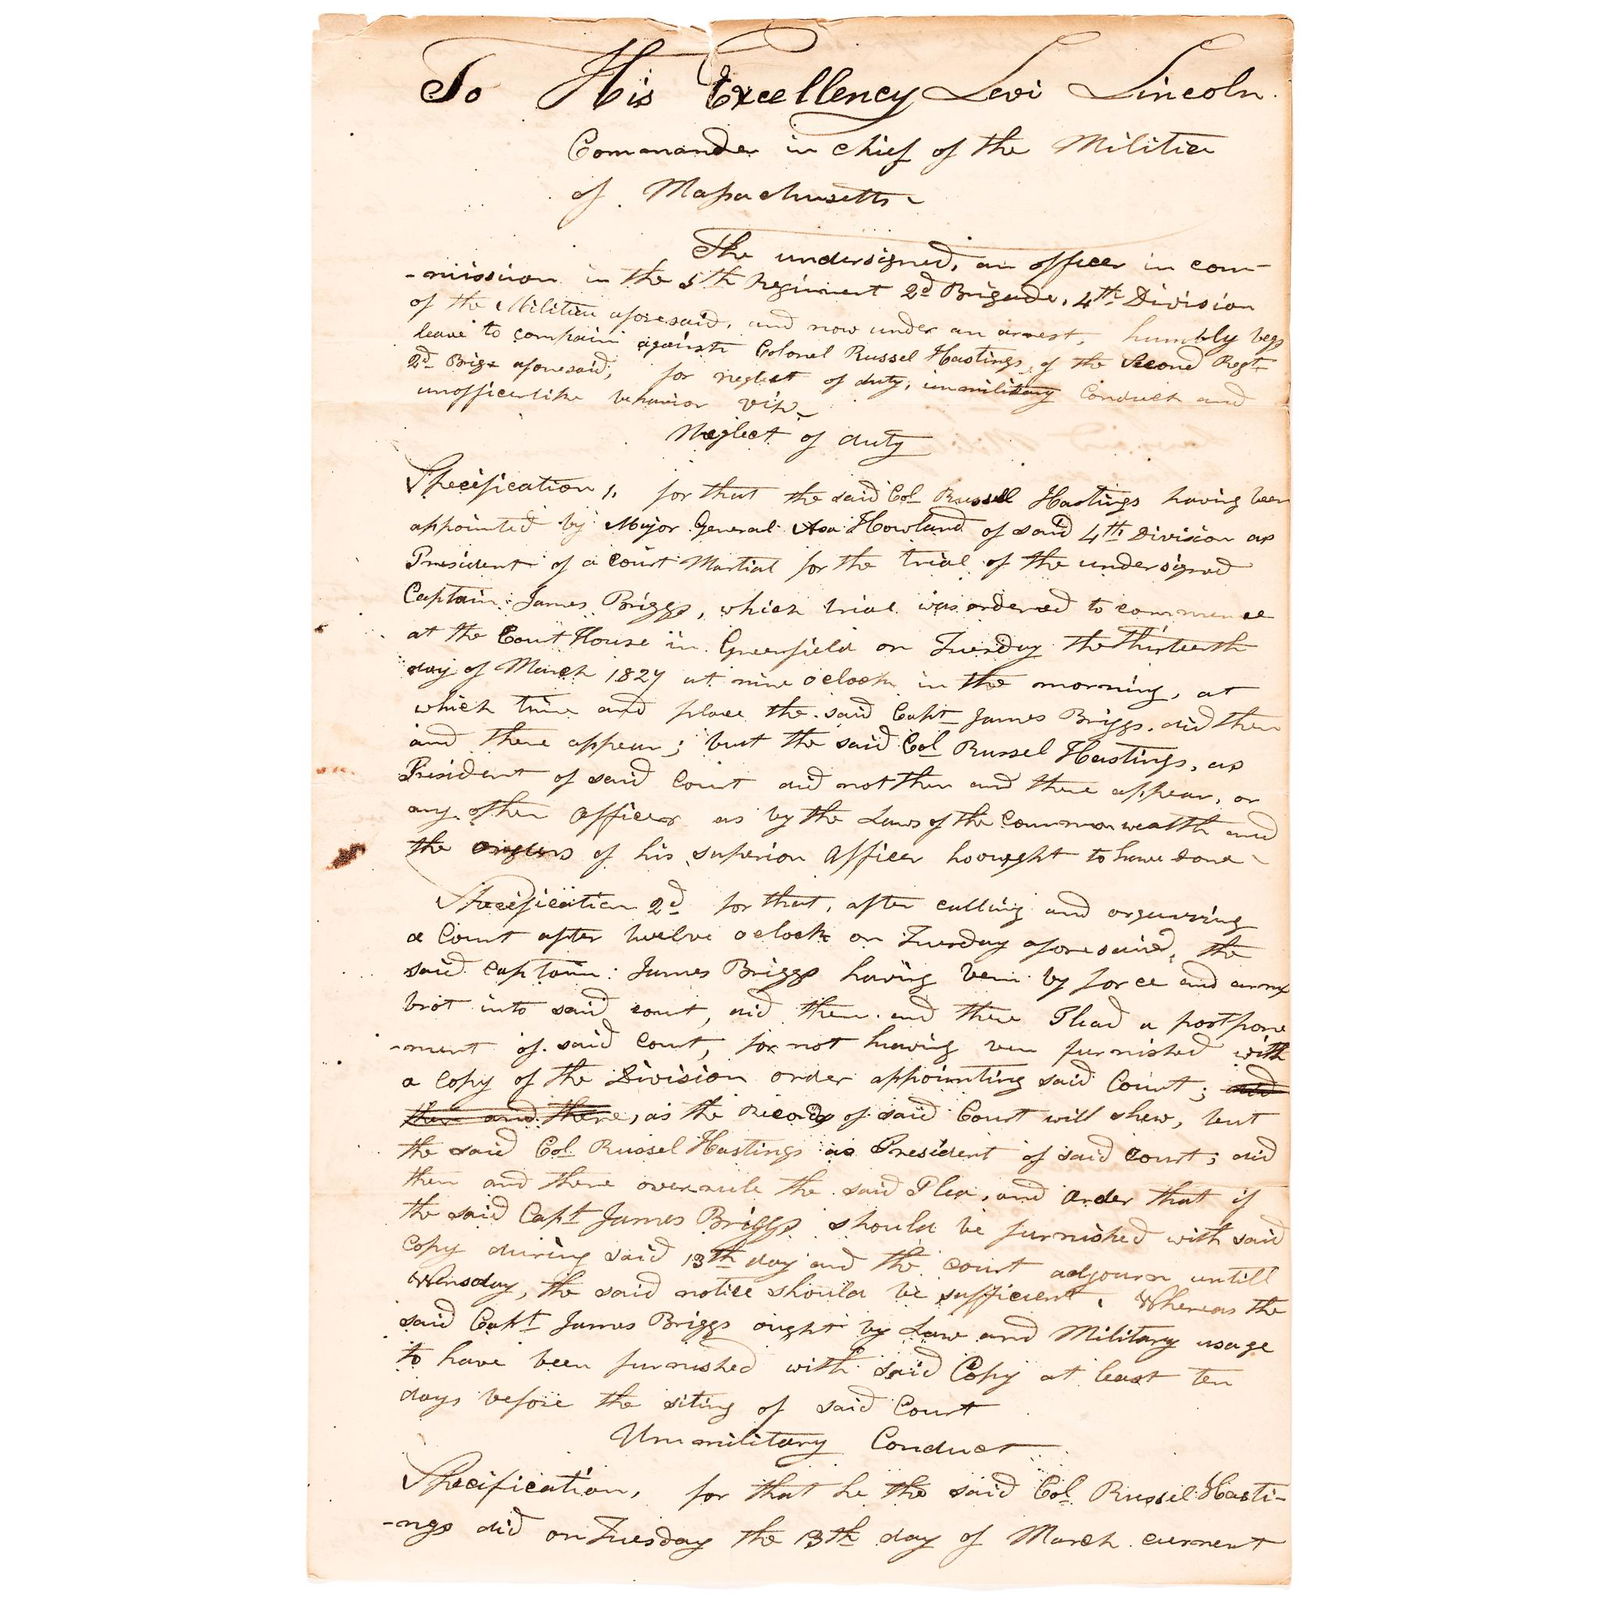 To His Excellency Levi Lincoln.
Commander in chief of the Militia
of Massachusetts
The undersigned, an officer in com-
-mission in the 5th Regiment 2d Brigade, 4th Division
of the Militia aforesaid, and now under an arrest, humbly begs
leave to complain against Colonel Russel Hastings, of the Second Regt
2d Brig. aforesaid, for neglect of duty, unmilitary Conduct and
unofficerlike behavior viz.
Neglect of duty
Specification 1, for that the said Col Russell Hastings having been
appointed by Major General Asa Howland of said 4th Division as
President of a Court Martial for the trial of the undersigned
Captain: James Briggs, which trial was ordered to commence
at the Court House in Greenfield on Tuesday the Thirteenth
day of March 1827 at nine oclock in the morning, at
which time and place the said Capt James Briggs did then
and there appear; but the said Col Russel Hastings, as
President of said Court did not then and there appear, or
any other officer as by the Laws of the Commonwealth and
the orders of his superior officer he ought to have done
Specification 2d for that, after calling and organizing
a Court after twelve oclock on Tuesday aforesaid, the
said Captain: James Briggs having been by force and arms
brot into said court, did then and there Plead a postpone
-ment of said Court, for not having ben furnished with
a copy of the Division order appointing said Court; and
then and there, as the Records of said Court will shew, but
the said Col Russel Hastings as President of said Court; did
then and there overrule the said Plea, and order that if
the said Capt James Briggs should be furnished with said
Copy during said 13th day and the Court adjourn untill
Wensday, the said notice should be sufficient. Whereas the
said Capt James Briggs ought by Law and Military usage
to have been furnished with said Copy at least ten
days before the siting of said Court
Unmilitary Conduct
Specification, for that he the said Col Russel Hasti-
-ngs did on Tuesday the 13th day of March current